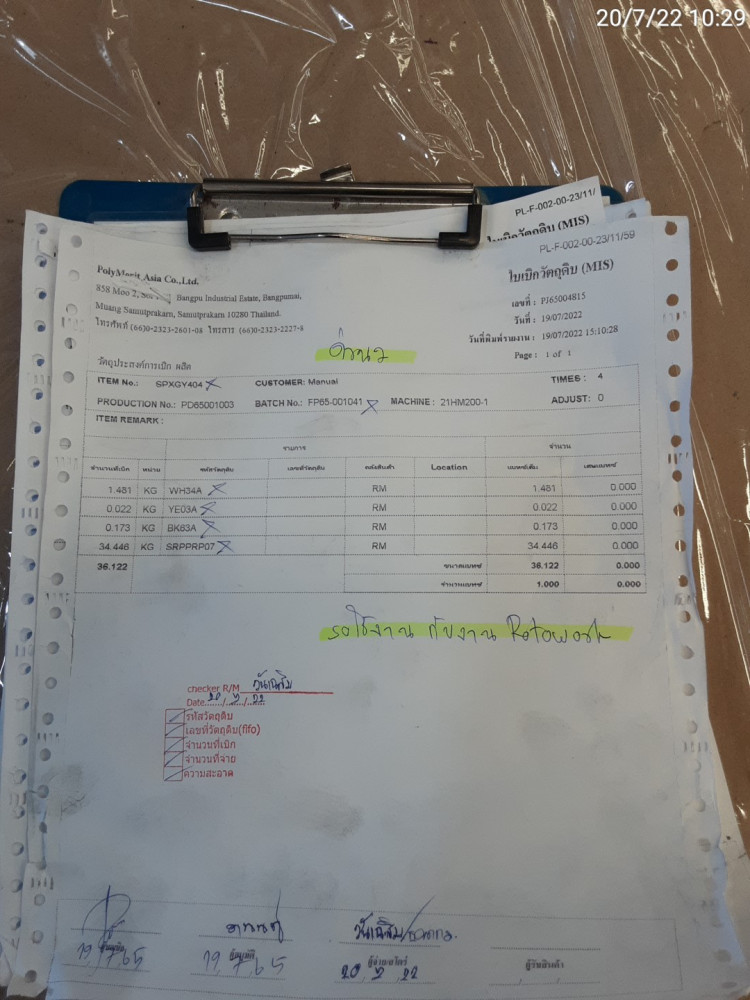 20/7/22 10:29
PL-F-002-00-23/11/
ใบเบิกวัตถุดิบ (MIS)
PL-F-002-00-23/11/59
ใบเบิกวัตถุดิบ (MIS)
PolyMerit Asia Co.,Ltd.
858 Moo 2, Bangpu Industrial Estate, Bangpumai,
Muang Samutprakarn, Samutprakarn 10280 Thailand.
โทรศัพท์ (66)0-2323-2601-08 โทรสาร (66)0-2323-2227-8
เลขที่ : PJ65004815
วันที่ : 19/07/2022
วันที่พิมพ์รายงาน : 19/07/2022 15:10:28
Page : 1 of 1
ด่วน
วัตถุประสงค์การเบิก ผลิต
ITEM No.: SPXGY404 CUSTOMER: Manual TIMES : 4
PRODUCTION No.: PD65001003 BATCH No.: FP65-001041 MACHINE : 21HM200-1 ADJUST: 0
ITEM REMARK :
รายการ จำนวน
จำนวนที่เบิก หน่วย รหัสวัตถุดิบ เลขที่วัตถุดิบ คลังสินค้า Location แบทช์เต็ม เศษแบทช์
1.481 KG WH34A RM 1.481 0.000
0.022 KG YE03A RM 0.022 0.000
0.173 KG BK63A RM 0.173 0.000
34.446 KG SRPPRP07 RM 34.446 0.000
36.122 ขนาดแบทช์ 36.122 0.000
จำนวนแบทช์ 1.000 0.000
รอใช้งาน กับงาน Rotowork
checker R/M วันเฉลิม
Date 20 / 7 / 22
รหัสวัตถุดิบ
เลขที่วัตถุดิบ(fifo)
จำนวนที่เบิก
จำนวนที่จ่าย
ความสะอาด
วันเฉลิม/
19 / 7 / 65 19 / 7 / 65 20 / 7 / 22
ผู้อนุมัติ ผู้จ่ายสโตร์ ผู้รับสินค้า